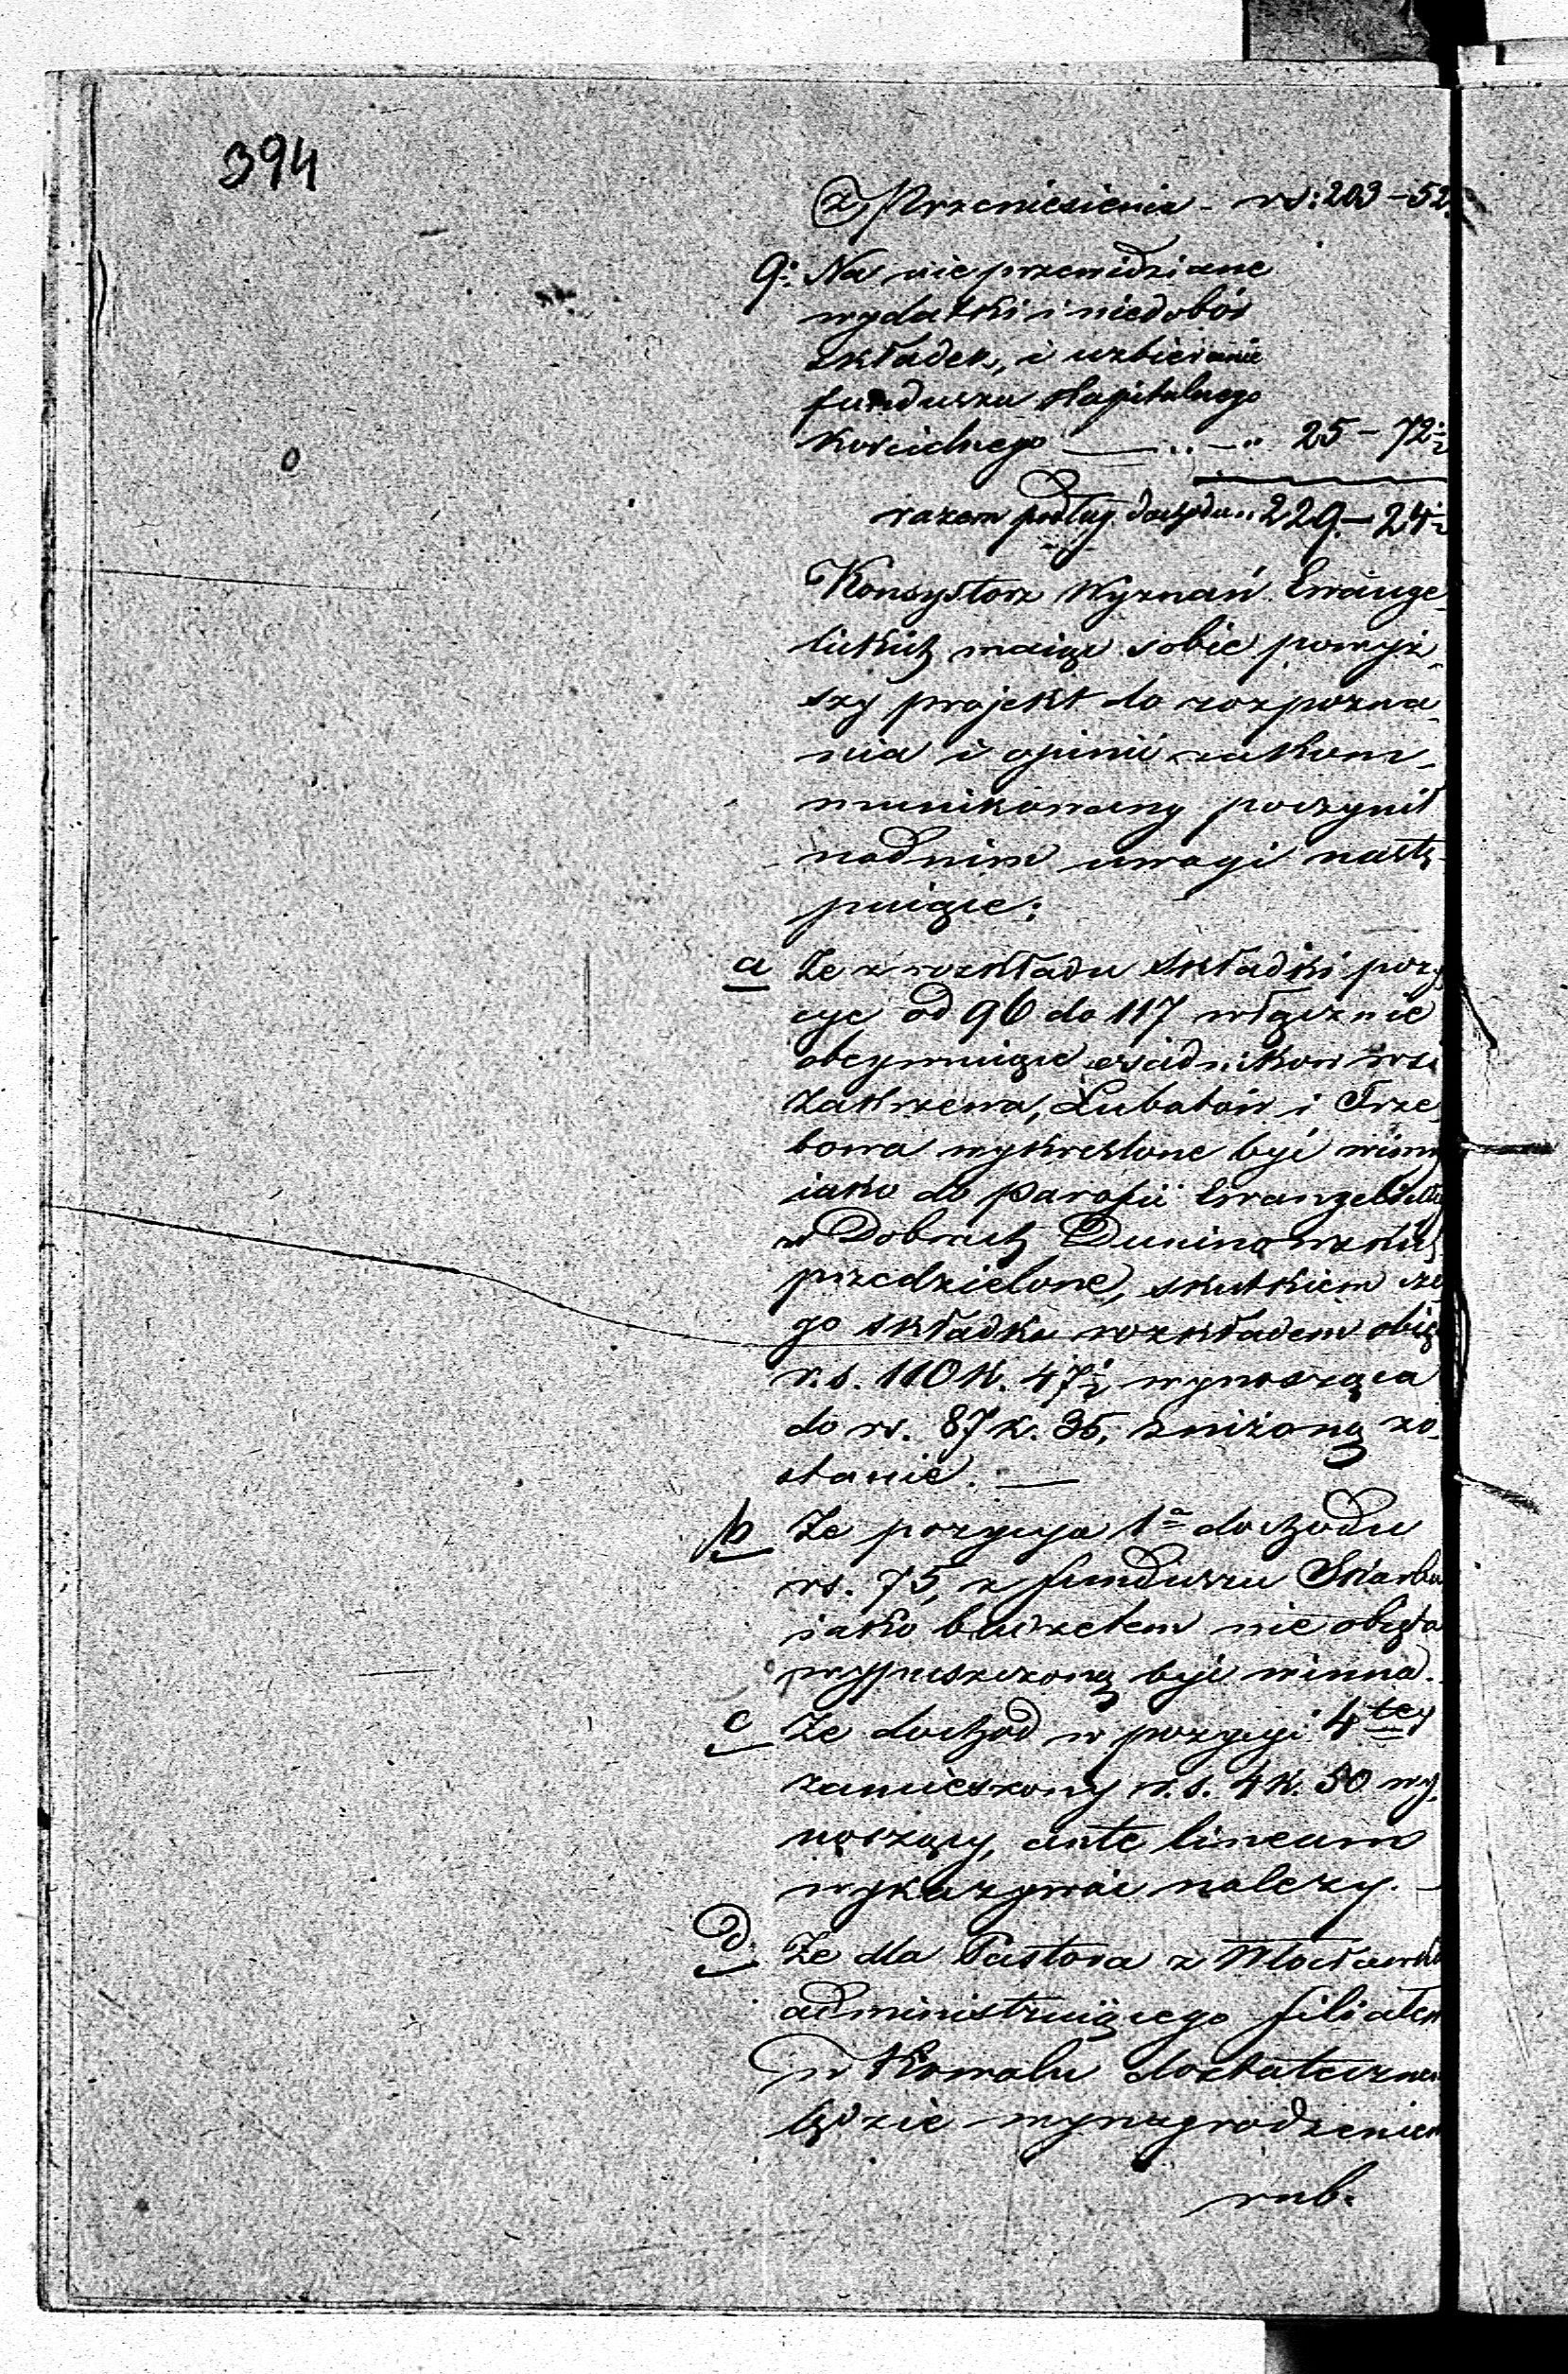 394
Z Przeniesienia - rs: 203 - 52
9: Na nie przewidziane
wydatki i niedobór
składek, i uzbieranie
funduszu kapitalnego
kościelnego — „ - „ 25 - 72½
razem podług dochodu „ 229 - 24½
Konsystorz Wyznań Ewange-
lickich maiąc sobie powyż-
szy projekt do rozpozna-
nia i opinii zakom-
munikowany poczynił
nad nim uwagi nastę-
puiące:
a Że z rozkładu składki pozy
cye od 96 do 117 włącznie
obeymuiące osadników wsi
Zakrzewa, Lubatów i Trze
bowa wykreślone być winny
iako do Parafii Ewangelickiey
w Dobrach Duninowskich
przedzielone, skutkiem cze
go składka rozkładem obięta
r.s. 110 k. 47½ wynosząca
do rs. 87 k. 35, zniżoną zo-
stanie. —
b Że pozycya 1a dochodu
rs. 75, z funduszu Skarbu
iako budżetem nie obięta
wypuszczoną być winna.
c Że dochód w pozycyi 4tey
zamieszczony r.s. 4 k. 50 wy-
noszący, ante lineam
wykazywać należy. —
d. Że dla Pastora z Włocławka
administruiącego filiałem
w Kowalu dostatecznem
będzie wynagrodzeniem
rub.